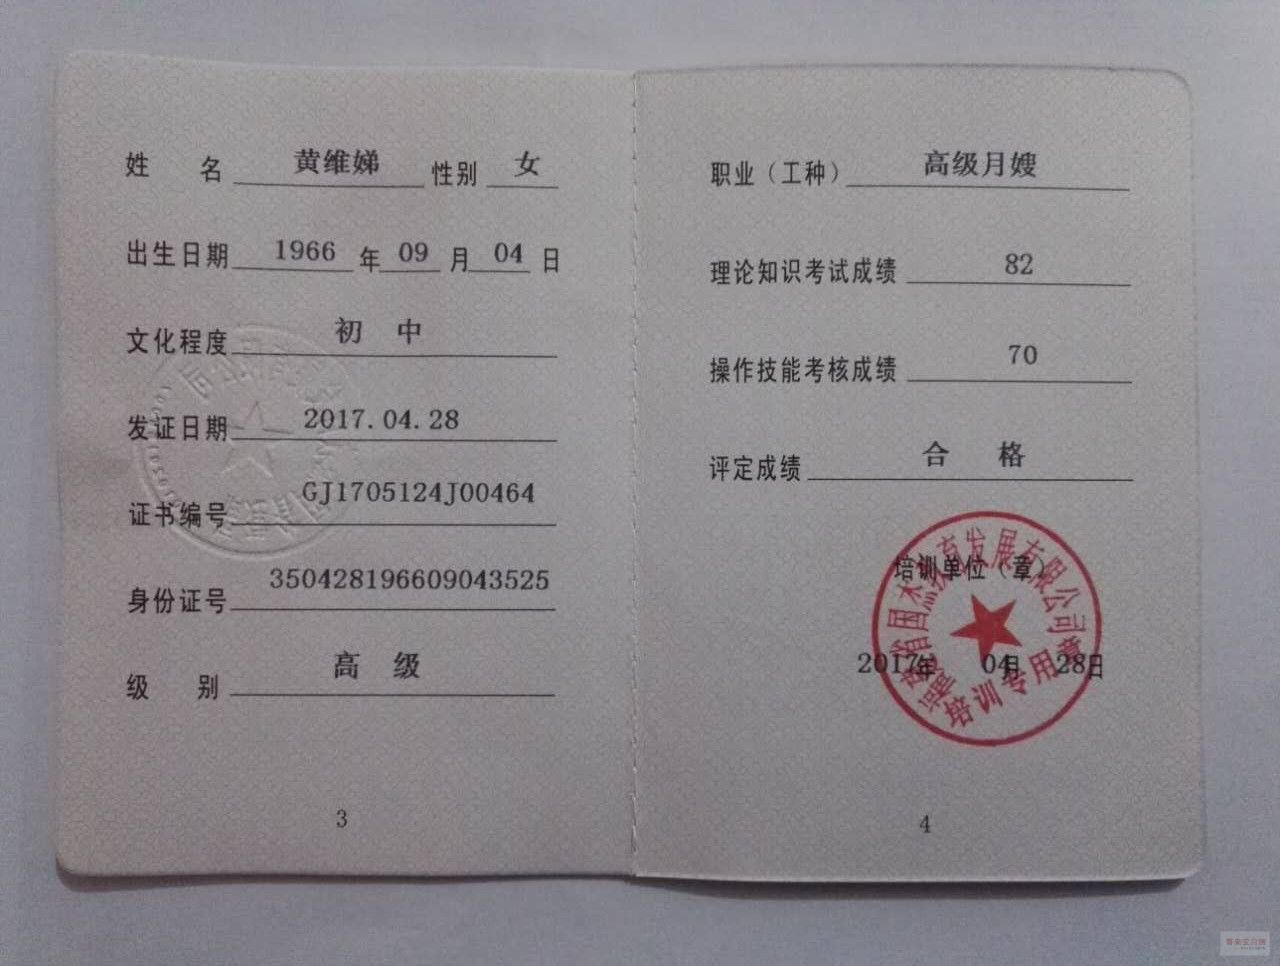 姓 名 黄维娣 性别 女
出生日期 1966 年 09 月 04 日
文化程度 初 中
发证日期 2017.04.28
证书编号 GJ1705124J00464
身份证号 350428196609043525
级 别 高 级
3
职业（工种） 高级月嫂
理论知识考试成绩 82
操作技能考核成绩 70
评定成绩 合 格
培训单位（章）
2017年 04月 28日
省国杰教育发展有限公司
培训专用章
4